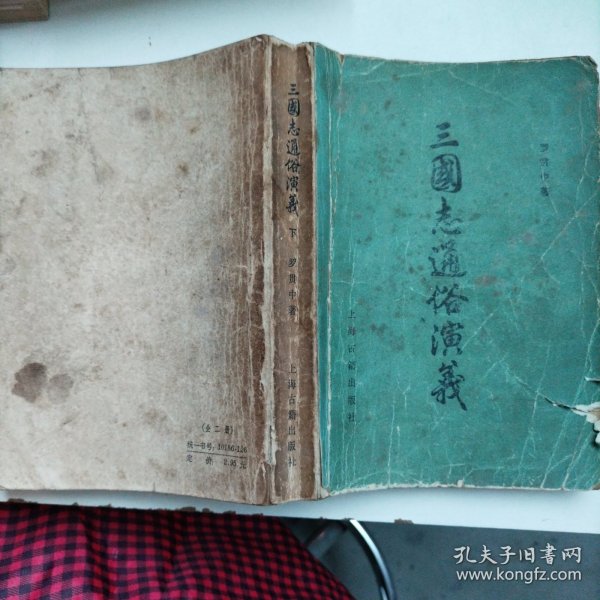 三國志通俗演義
罗贯中著
上海古籍出版社
三國志通俗演義 下 罗贯中著 上海古籍出版社
(全二册)
统一书号：10186·126
定价 2.95元
孔夫子旧书网
www.kongfz.com